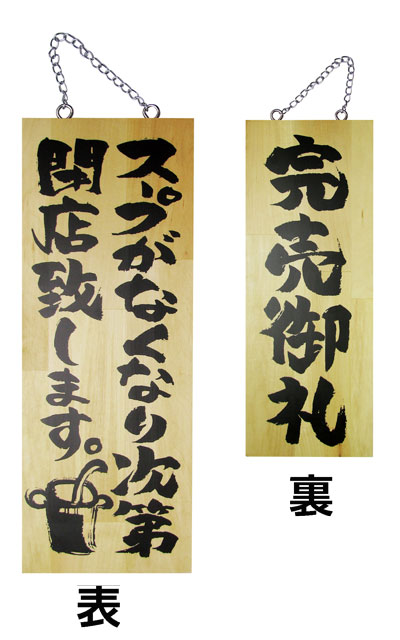 スープがなくなり次第
閉店致します。
表
完売御礼
裏